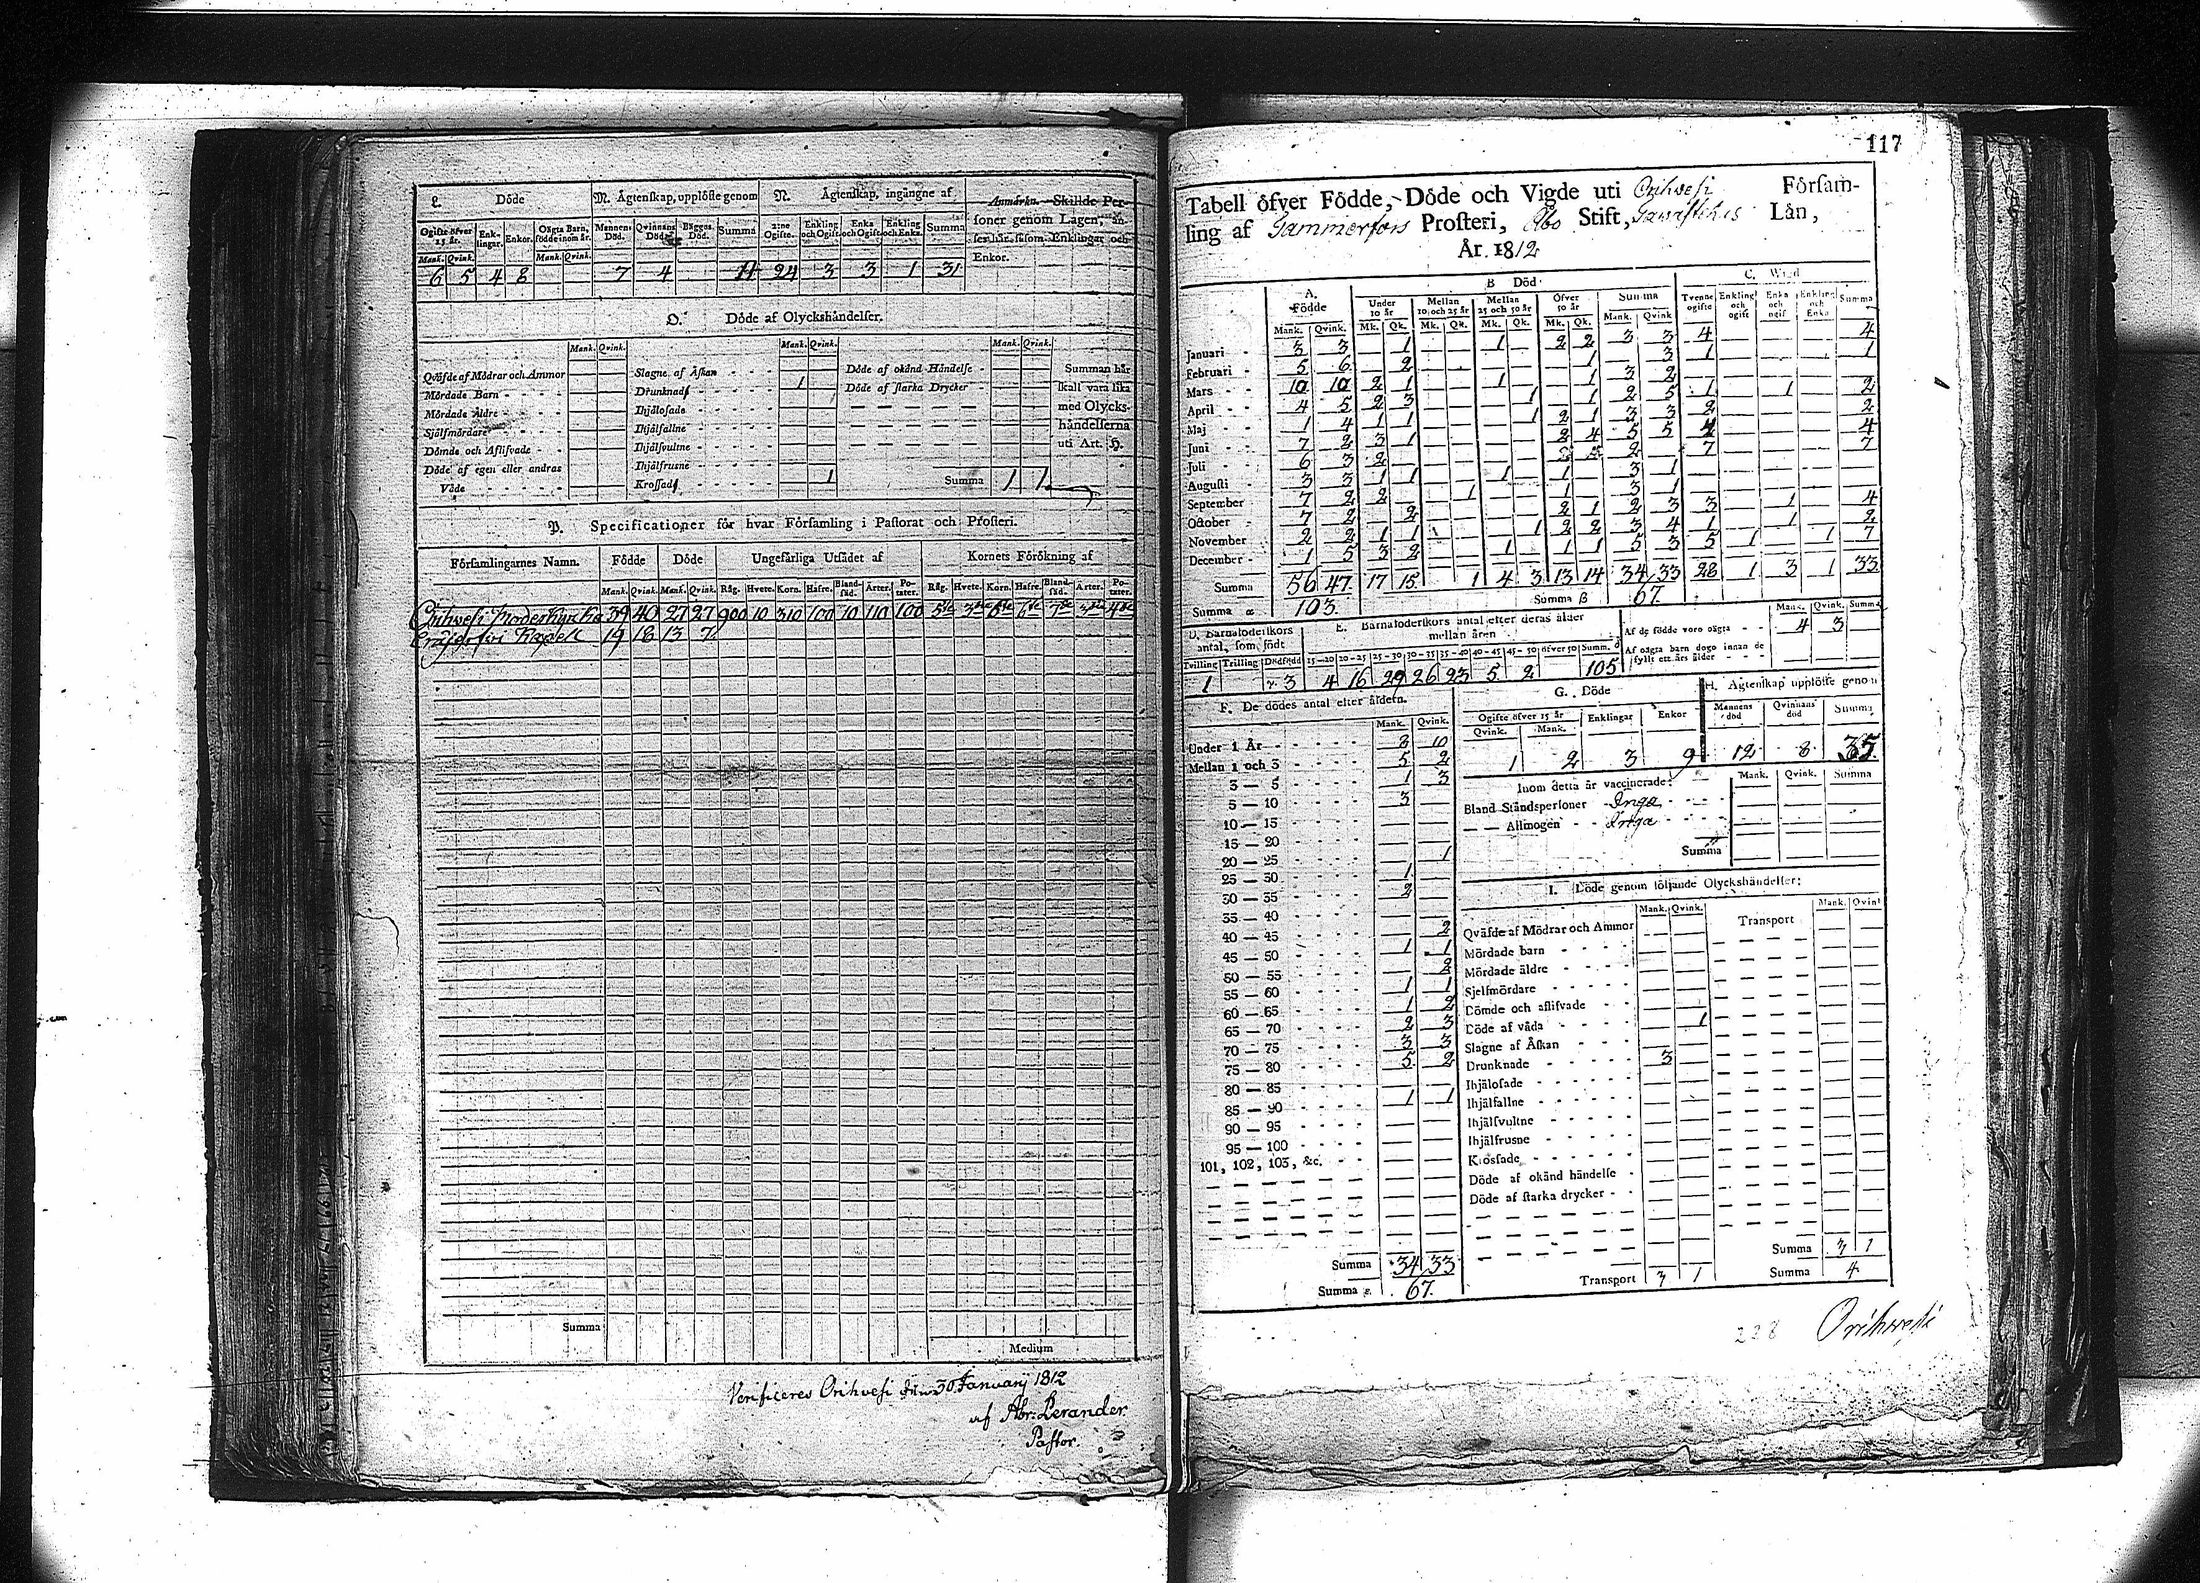 L. Döde
M. Ägtenskap, uplöste genom
N. Ägtenskap, ingångne af
Anmärkn. Skillde Personer genom Lagen, Enklingar och Enkor.
Ogifte öfver 15 år. Enklingar. Enkor. Oägta Barn, födde inom år.
Mannens Död. Qvinnans Död. Bägges Död. Summa
2:ne Ogifte. Enkling och Ogift Enka och Ogift Enkling och Enka Summa
Mank. Qvink. Mank. Qvink.
6 5 4 8 7 4 11 24 3 3 1 31
O. Döde af Olyckshändelser.
Mank. Qvink. Mank. Qvink. Mank. Qvink.
Qväfde af Mödrar och Ammor
Mördade Barn
Mördade Äldre
Sjålfmördare
Dömde och Aflifvade
Döde af egen eller andras
Våde
Slagne af Åskan
Drunknad 1
Ihjälfrosade
Ihjälfallne
Ihjälsvultne
Ihjälfrusne
Krossad 1
Döde af okänd Händelse
Döde af starka Drycker
Summa 1 1
Summan här
skall vara lika
med Olycks-
händelserna
uti Art. H.
P. Specificationer för hvar Församling i Pastorat och Prosteri.
Församlingarnes Namn. Födde Döde Ungefärliga Utsädet af Kornets Förökning af
Mank. Qvink. Mank. Qvink. Råg. Hvete. Korn. Hafre. Bland-säd. Ärter. Potater. Råg. Hvete. Korn. Hafre. Bland-säd. Ärter. Potater.
Orihvesi Moderkyrka 39 40 27 27 900 10 310 100 10 110 100
Kapell 19 18 13 7
Summa
Medium
Verificeras Orihvesi den 30 Januarij 1812
af Abr: Lerander
Pastor.
117
Tabell öfver Födde, Döde och Vigde uti Orihvesi Försam-
ling af Tammerfors Prosteri, Åbo Stift, Tawastehus Län,
År 1812
A. Födde
B Död
C. Wigd
Under 10 år Mellan 10 och 25 år Mellan 25 och 50 år Öfver 50 år Summa Tvenne ogifte Enkling och ogift Enka och ogif Enkling och Enka Summa
Mank. Qvink. Mk. Qk. Mk. Qk. Mk. Qk. Mk. Qk. Mank. Qvink
Januari 3 3 1 1 2 2 3 3 4 4
Februari 5 6 2 1 3 1 1
Mars 10 10 2 1 1 1 3 2
April 4 5 2 3 1 1 2 5 1 1 2
Maj 1 4 1 1 1 2 1 3 3 2 2
Juni 7 2 3 1 2 4 5 5 4 4
Juli 6 3 2 2 7 7
Augusti 3 3 1 1 1 1 3 1
September 7 2 2 1 1 3 1
October 7 2 2 2 1 2 3 3 1 4
November 2 2 1 1 1 2 2 3 4 1 1 2
December 1 5 3 2 1 1 1 5 3 5 1 1 7
Summa 56 47 17 15 1 4 3 13 14 34 33 28 1 3 1 33
Summa α 103
Summa β 67.
D. Barnaföderskors
antal, som födt
Tvilling Trilling Dödfödd
1 3
E. Barnaföderskors antal efter deras ålder
mellan åren
15—20 20—25 25—30 30—35 35—40 40—45 45—50 öfver 50 Summ. δ
4 16 29 26 23 5 2 105
Mank. Qvink. Summa
Af de födde voro oägta 4 3
Af oägta barn dogo innan de
fyllt ett års ålder
F. De dödes antal efter åldern.
Mank. Qvink.
Under 1 År 8 10
Mellan 1 och 3 5 2
3 — 5 1 3
5 — 10 3
10 — 15
15 — 20
20 — 25 1
25 — 30 1
30 — 35 2
35 — 40
40 — 45 2
45 — 50 1 1
50 — 55 2
55 — 60 1 1
60 — 65 1 2
65 — 70 2 3
70 — 75 3 3
75 — 80 5 2
80 — 85
85 — 90 1 1
90 — 95
95 — 100
101, 102, 103, &c.
Summa 34 33
Summa ε. 67.
G. Döde
Ogifte öfver 15 år Enklingar Enkor
Qvink. Mank.
1 2 3 9
H. Ägtenskap upplöste genom
Mannens död Qvinnans död Summa
12 8 35
Inom detta år vaccinerade:
Mank. Qvink. Summa
Bland Ståndspersoner Inga
— — Allmogen Inga
Summa
I. Döde genom följande Olyckshändelser:
Mank. Qvink. Transport Mank. Qvink
Qväfde af Mödrar och Ammor
Mördade barn
Mördade äldre
Sjelfmördare
Dömde och aflifvade
Döde af våda 1
Slagne af Åskan
Drunknade 3
Ihjälosade
Ihjälfallne
Ihjälsvultne
Ihjälfrusne
Krossade
Döde af okänd händelse
Döde af starka drycker
Summa 3 1
Transport 3 1 Summa 4
228 Orihvesi